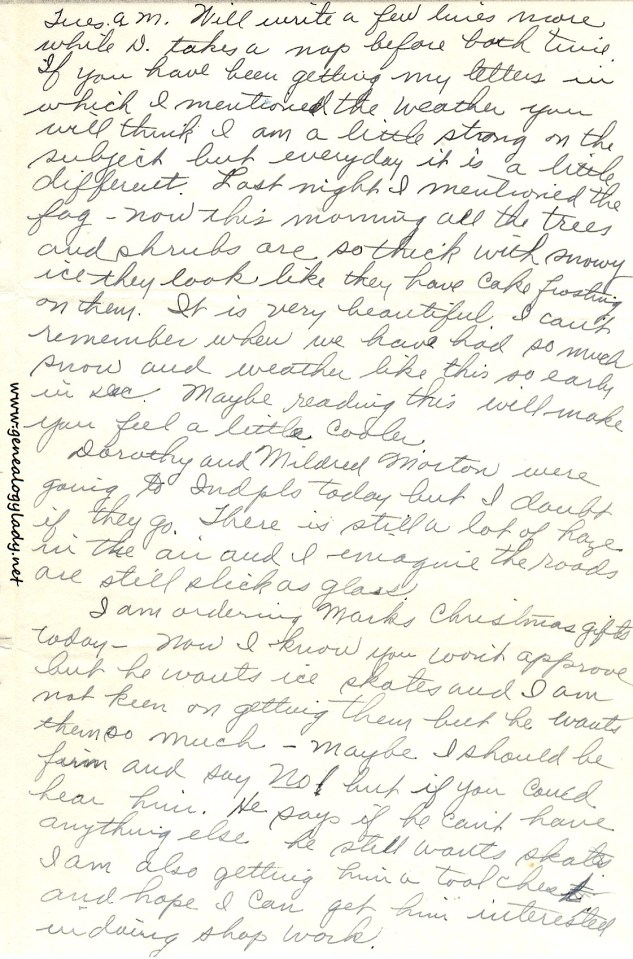 Tues. a.m. Will write a few lines more
while D. takes a nap before bath time.
If you have been getting my letters in
which I mentioned the weather you
will think I am a little strong on the
subject but everyday it is a little
different. Last night I mentioned the
fog – now this morning all the trees
and shrubs are so thick with snowy
ice they look like they have cake frosting
on them. It is very beautiful I can't
remember when we have had so much
snow and weather like this so early
in Dec. Maybe reading this will make
you feel a little cooler.
Dorothy and Mildred Morton were
going to Indpls today but I doubt
if they go. There is still a lot of haze
in the air and I imagine the roads
are still slick as glass.
I am ordering Marks Christmas gifts
today – now I know you won't approve
but he wants ice skates and I am
not keen on getting them but he wants
them so much – maybe I should be
firm and say No! but if you could
hear him. He says if he can't have
anything else he still wants skates
I am also getting him a tool chest
and hope I can get him interested
in doing shop work.
www.genealogylady.net